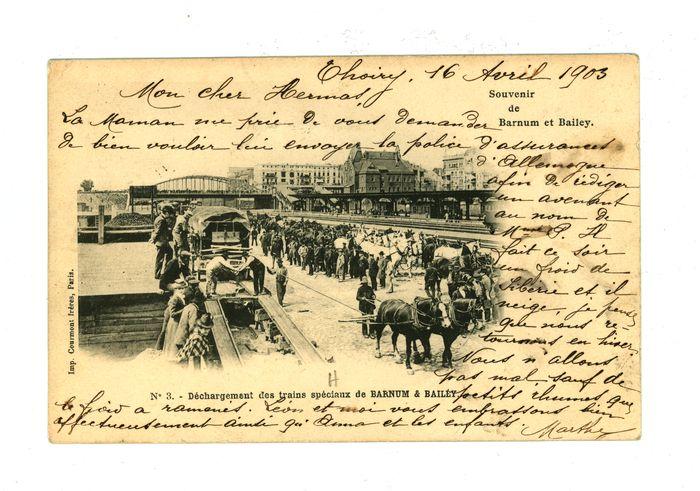 Thoiry, 16 Avril 1903
Mon cher Hermas,
Souvenir
de
Barnum et Bailey.
La Maman me prie de vous demander
de bien vouloir lui envoyer la police d'assurances
d'Allemagne
afin de rédiger
un avenant
au nom de
Mme P. H
fait ce soir
un froid de
Sibérie et il
neige, je pense
que nous re-
tournons en hiver
Nous n'allons
pas mal, sauf de
petits rhumes que
le froid a ramenés. Léon et moi vous embrassons bien
affectueusement ainsi qu'Anna et les enfants.
Marthe
Imp. Courmont frères, Paris.
H
N° 3. - Déchargement des trains spéciaux de BARNUM & BAILEY